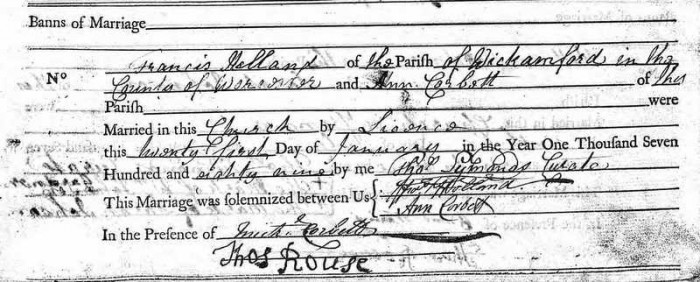 Banns of Marriage
Francis Holland of the Parish of Wickamford in the
No County of Worcester and Ann Corbett of this
Parish were
Married in this Church by Licence
this twenty first Day of January in the Year One Thousand Seven
Hundred and eighty nine by me Thos Symonds Curate
This Marriage was solemnized between Us Holland
Ann Corbett
In the Presence of Michl Corbett
Thos Rouse